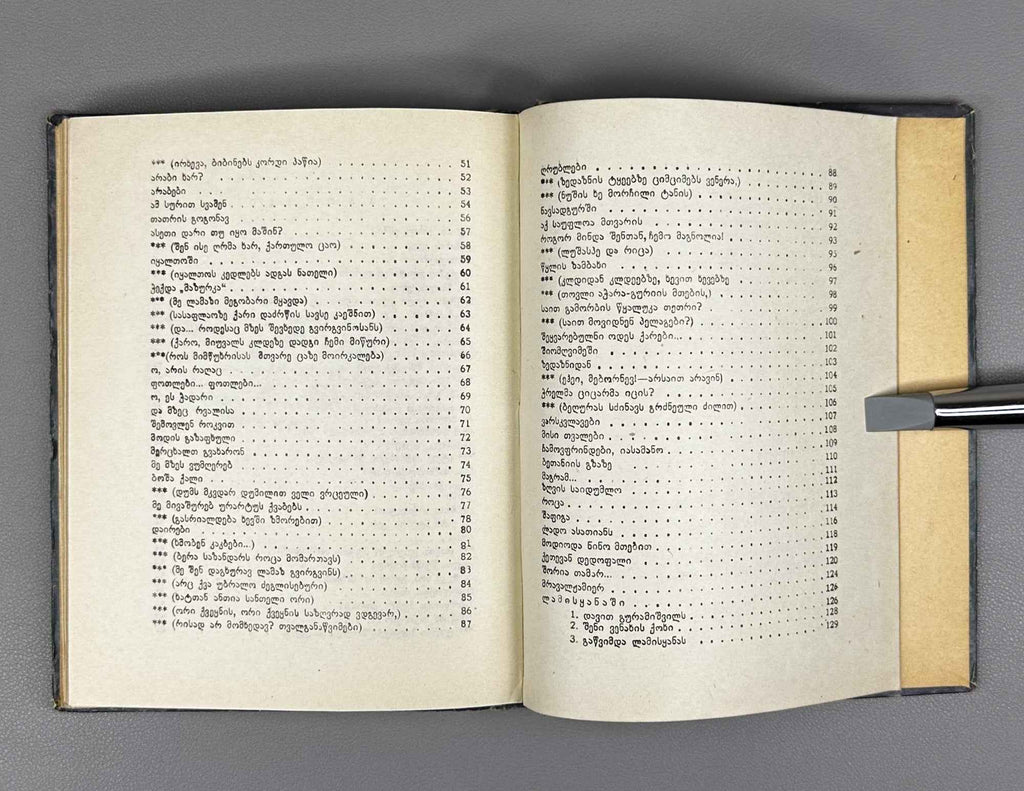 *** (ირხევა, ბიბინებს კორდი პაწია) . . . 51
არაბი ხარ? . . . 52
არაბები . . . 53
ამ სურით სვამენ . . . 54
თათრის გოგონავ . . . 56
ასეთი დარი თუ იყო მაშინ? . . . 57
*** (შენ ისე ღრმა ხარ, ქართულო ცაო) . . . 58
იყალთოში . . . 59
*** (იყალთოს კედლებს ადგას ნათელი) . . . 60
ჰქედა „მაზურკა“ . . . 61
*** (მე ლამაზი მეგობარი მყავდა) . . . 62
*** (სასაფლაოზე ქარი დაძრწის სავსე კაეშნით) . . . 63
*** (და... როდესაც მზეს შევხედე გვირგვინოსანს) . . . 64
*** (ქარო, მიუვალს კლდეზე დადგი ჩემი მიწური) . . . 65
***(როს მიმწუხრისას მთვარე ცაზე მოირკალება) . . . 66
ო, არის რაღაც . . . 67
ფოთლები... ფოთლები... . . . 68
ო, ეს ჭადარი . . . 69
და მზეც რვალისა . . . 70
შემოვლენ როკვით . . . 71
მოდის გაზაფხული . . . 72
მერცხალთ გვახარონ . . . 73
მე მზეს ვუმღერებ . . . 74
ბოშა ქალი . . . 75
*** (დუმს მკვდარ დუმილით ველი ვრცეული) . . . 76
მე მივაშურებ ურარტუს ქვაბებს . . . 77
*** (გასრიალდება ხევში ზმორებით) . . . 78
დაირები . . . 80
*** (ხმობენ კაკბები...) . . . 81
*** (ბერა საზანდარს როცა მომართავს) . . . 82
*** (მე შენ დაგხურავ ლამაზ გვირგვინს) . . . 83
*** (არც ქვა უბრალო ძეგლისებური) . . . 84
*** (ხატთან ანთია სანთელი ორი) . . . 85
*** (ორი ქვეყნის, ორი ქვეყნის საზღვრად ვდგევარ,) . . . 86
*** (რისად არ მომხედავ? თვალგანაწვიმები) . . . 87
ღრუბლები . . . 88
*** (ზედაზნის ტყეებზე ციმციმებს ვენერა,) . . . 89
*** (ნუშის ხე მორჩილი ტანის) . . . 90
ნავსადგურში . . . 91
აქ საუფლოა მთვარის . . . 92
როგორ მინდა შენთან, ჩემო მაგნოლია! . . . 93
*** (ლუშასპე და რიცა) . . . 95
წყლის ზამბახი . . . 96
*** (კლდიდან კლდეებზე, ხევით ხევებზე . . . 97
*** (თოვლი აჭარა-გურიის მთების,) . . . 98
საით გამორბის წყალუკა თეთრი? . . . 99
*** (საით მოვიდნენ პელაგები?) . . . 100
შეყვარებულნი ოდეს ქარები... . . . 101
შიომღვიმეში . . . 102
ზედაზნიდან . . . 103
*** (ეჰეი, მებორნევ!—არსაით არავინ) . . . 104
ჭრელმა ციცარმა იცის? . . . 105
*** (ბეღურას სძინავს გრძნეული ძილით) . . . 106
ვარსკვლავები . . . 107
მისი თვალები . . . 108
ჩამოვფრინდები, იასამანო . . . 109
ბეთანიის გზაზე . . . 110
მაგრამ... . . . 111
ზღვის საიდუმლო . . . 112
როცა . . . 113
შაფიგა . . . 114
ლადო ასათიანს . . . 116
მოდიოდა ნინო მთებით . . . 118
ქეთევან დედოფალი . . . 119
შორია თამარ... . . . 120
მრავალჟამიერ . . . 124
ლამისყანაში . . . 126
1. დავით გურამიშვილს . . . 126
2. შენი ვენახის ქოხი . . . 128
3. გაწვიმდა ლამისყანას . . . 129